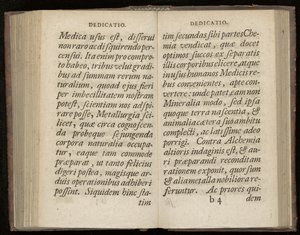 DEDICATIO.
Medica usus est, disserui
non raro ac disquirendo per-
censui. Ita enim pro comper-
to habeo, tribus velut gradi-
bus ad summam rerum na-
turalium, quoad ejus fieri
per imbecillitatem nostram
potest, scientiam nos adspi-
rare posse, Metallurgia sci-
licet, quæ circa cognoscen-
da probeque sejungenda
corpora naturalia occupa-
tur, eaque tam commode
præparat, ut tanto felicius
digeri postea, magisque ar-
duis operationibus adhiberi
possint. Siquidem hinc sta-
tim
DEDICATIO.
tim secundas sibi partes Che-
mia vendicat, quæ docet
optimos succos ex separatis
illis corporibus elicere, atque
in usus humanos Medicis re-
bus convenientes, apte con-
vertere: unde patet, eam non
Mineralia modo, sed ipsa
quoque terra nascentia, &
animalia cætera suo ambitu
complecti, ac latissime adeo
porrigi. Contra Alchemia
altioris indaginis est, & au-
ri præparandi reconditam
rationem exponit, quorsum
& alia metalla nobiliora re-
feruntur. Ac priores qui-
b 4 dem